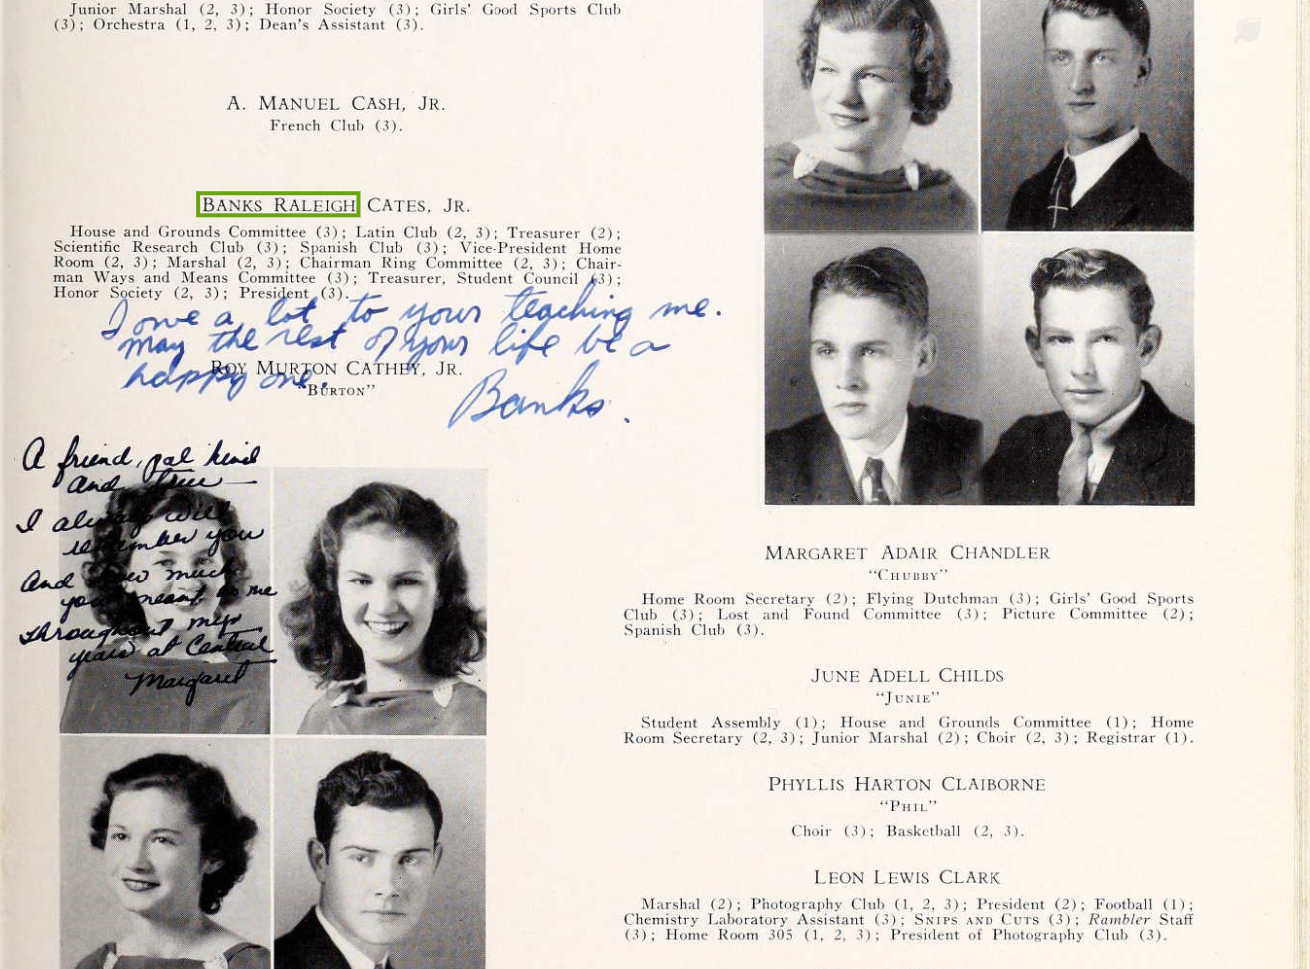 Junior Marshal (2, 3); Honor Society (3); Girls' Good Sports Club
(3); Orchestra (1, 2, 3); Dean's Assistant (3).
A. MANUEL CASH, JR.
French Club (3).
BANKS RALEIGH CATES, JR.
House and Grounds Committee (3); Latin Club (2, 3); Treasurer (2);
Scientific Research Club (3); Spanish Club (3); Vice-President Home
Room (2, 3); Marshal (2, 3); Chairman Ring Committee (2, 3); Chair-
man Ways and Means Committee (3); Treasurer, Student Council (3);
Honor Society (2, 3); President (3).
I owe a lot to your teaching me.
May the rest of your life be a
happy one.
Banks.
ROY MURTON CATHEY, JR.
"BURTON"
A friend, pal kind
and true—
I always will
remember you
And how much
you meant to me
throughout my
years at Central
Margaret
MARGARET ADAIR CHANDLER
"CHUBBY"
Home Room Secretary (2); Flying Dutchman (3); Girls' Good Sports
Club (3); Lost and Found Committee (3); Picture Committee (2);
Spanish Club (3).
JUNE ADELL CHILDS
"JUNIE"
Student Assembly (1); House and Grounds Committee (1); Home
Room Secretary (2, 3); Junior Marshal (2); Choir (2, 3); Registrar (1).
PHYLLIS HARTON CLAIBORNE
"PHIL"
Choir (3); Basketball (2, 3).
LEON LEWIS CLARK
Marshal (2); Photography Club (1, 2, 3); President (2); Football (1);
Chemistry Laboratory Assistant (3); SNIPS AND CUTS (3); Rambler Staff
(3); Home Room 305 (1, 2, 3); President of Photography Club (3).